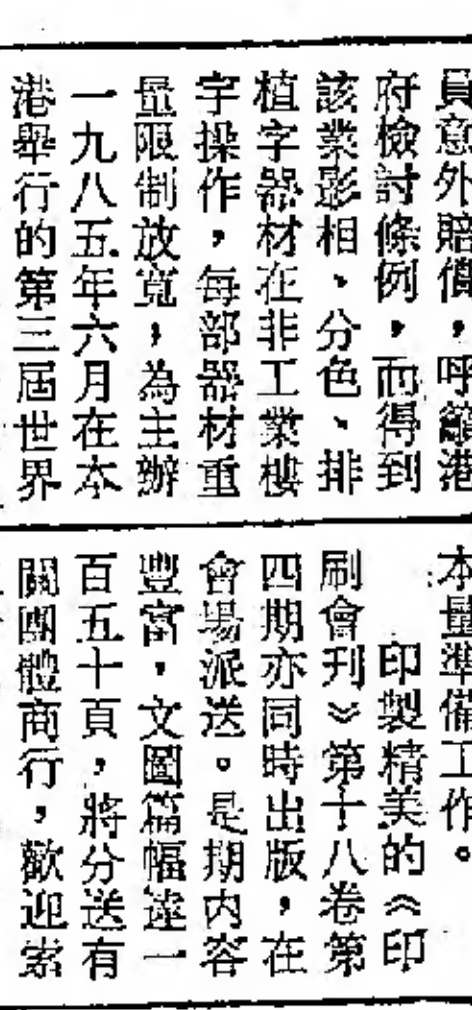 員意外賠償，呼籲港
府檢討條例，而得到
該業影相、分色、排
植字器材在非工業樓
字操作，每部器材重
量限制放寬，為主辦
一九八五年六月在本
港舉行的第三屆世界
本量準備工作。
印製精美的《印
刷會刊》第十八卷第
四期亦同時出版，在
會場派送。是期内容
豐富，文圖篇幅達一
百五十頁，將分送有
關團體商行，歡迎索